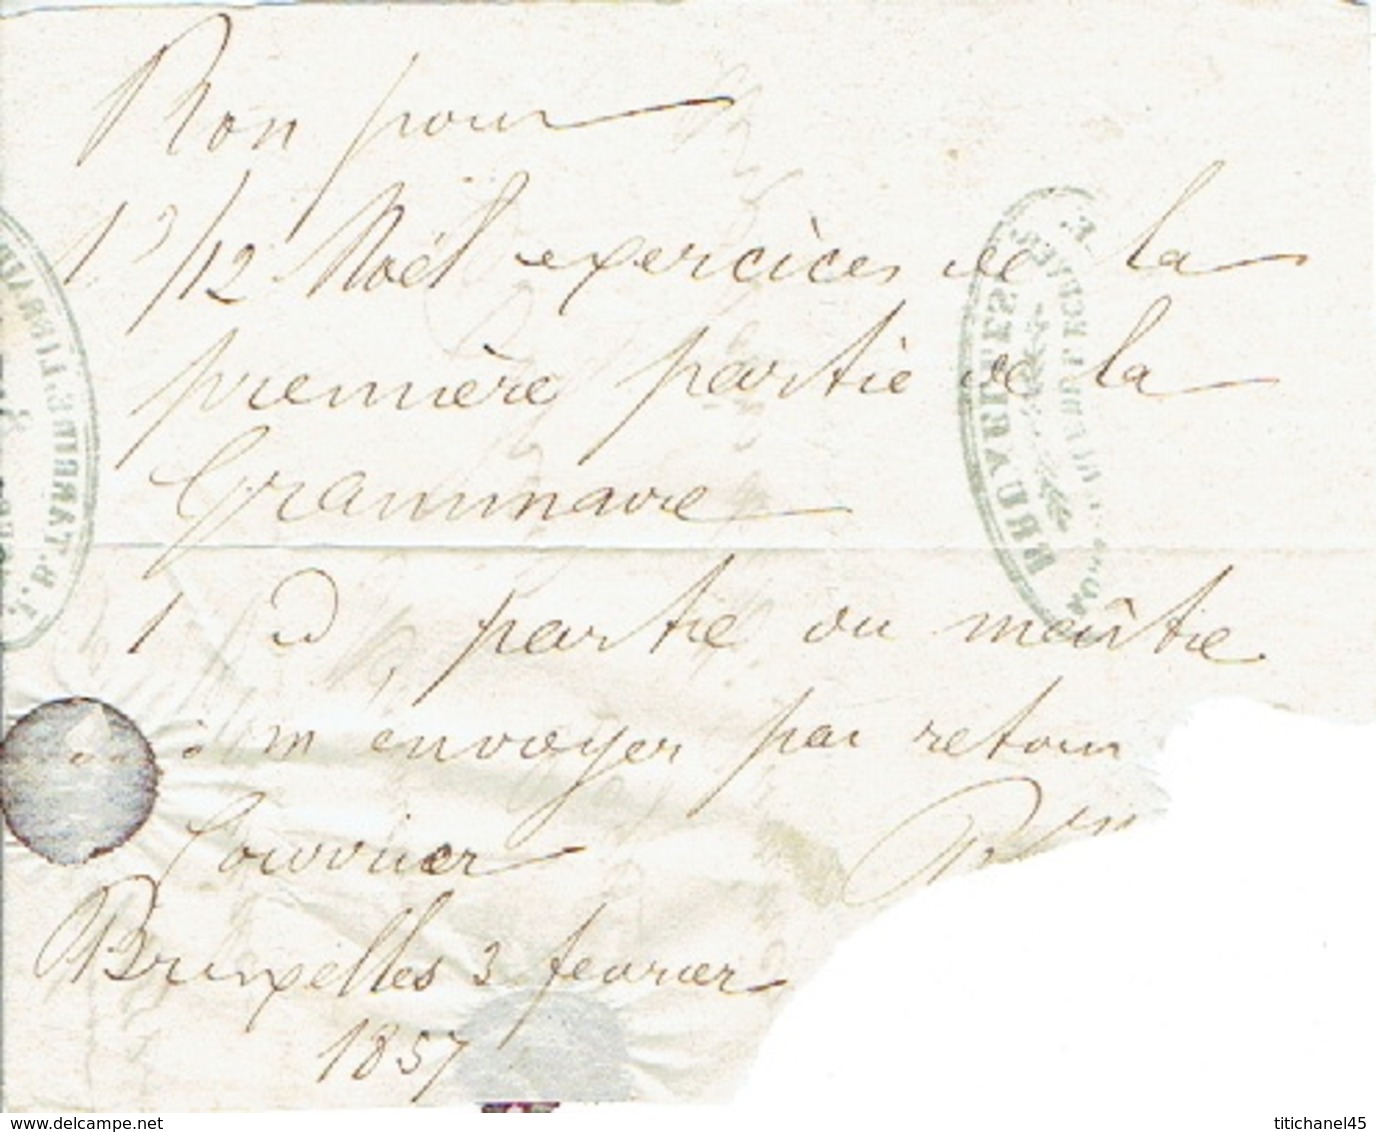 Bon pour
13/12 Noël exercices de la
première partie de la
Grammaire
1 D partie du maître
à m envoyer par retour
Courrier
Bruxelles 3 fevrier
1857
BRUXELLES
J. B. TARRIDE. LIBRAIRE
www.delcampe.net
titichanel45